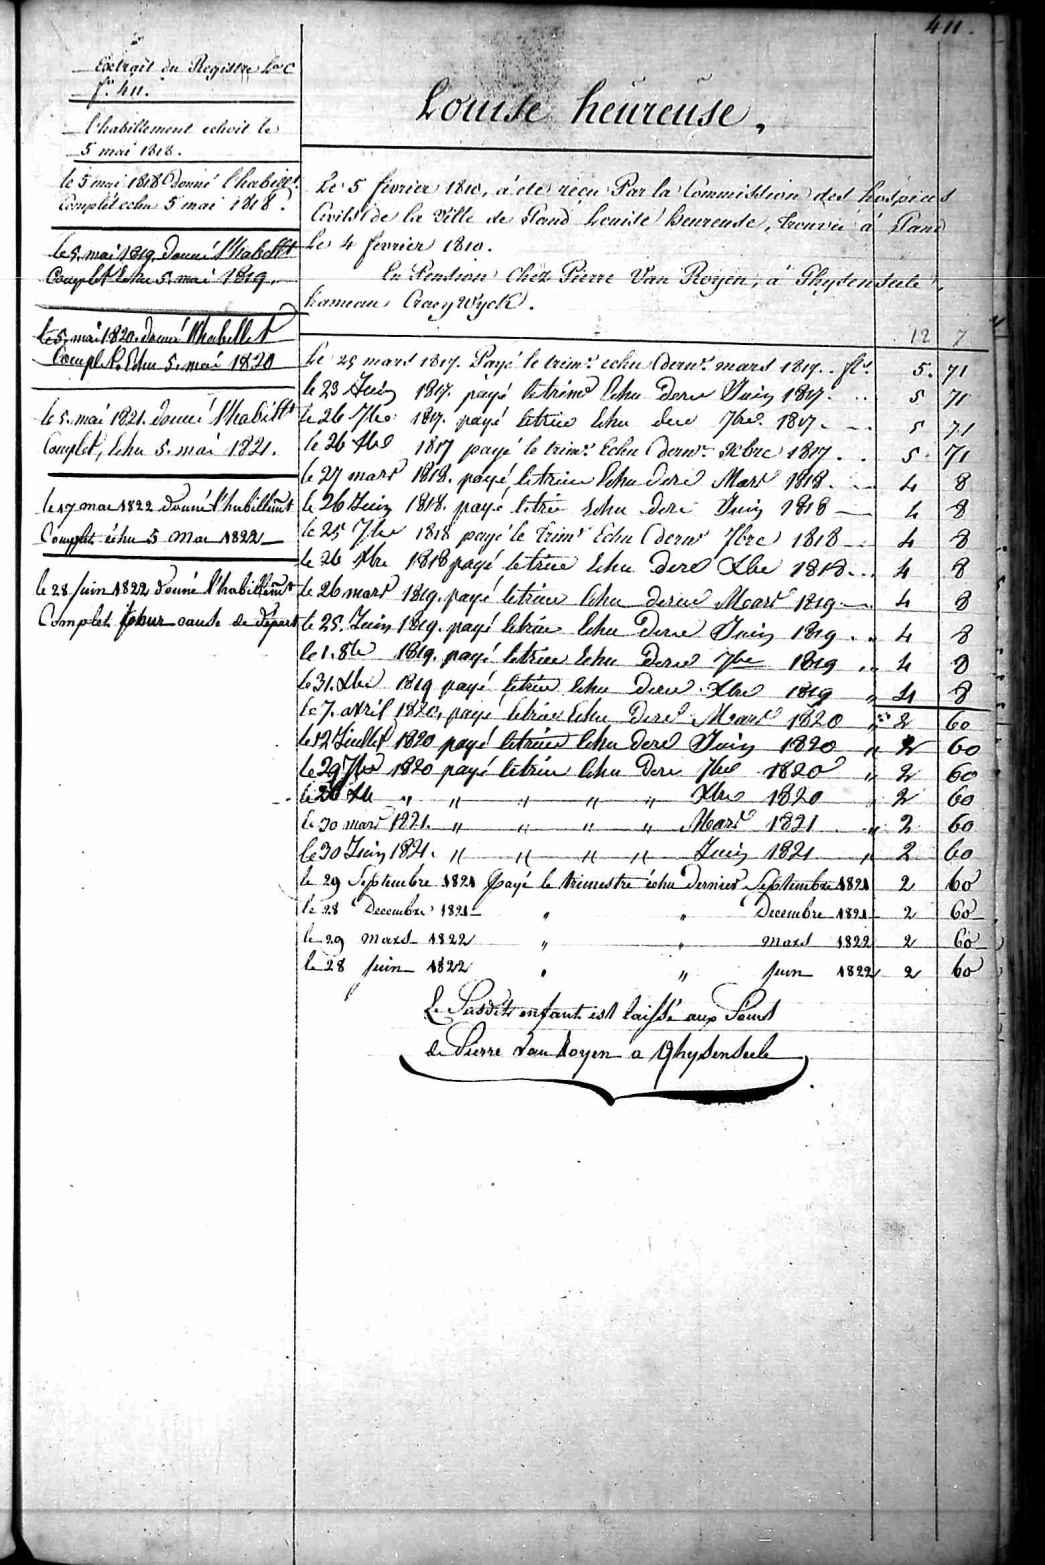 411.
Extrait du Registre L.ª C
f.º 411.
l'habillement echoit le
5 mai 1818.
le 5 mai 1818 donné l'habillt.
Complet echu 5 mai 1818.
le 5. mai 1819. donné l'habillt
Complet Echu 5. mai 1819.
le 5. mai 1820. donné l'habillet
Complet. Echu 5. mai 1820
le 5. mai 1821. donné l'habillt
Complet, Echu 5. mai 1821.
le 17 mai 1822 donné l'habillemt
Complet échu 5 Mai 1822
le 28 Juin 1822 donné l'habillemt
Complet pour cause de départ
Louise heureuse.
Le 5 février 1810, a été reçu Par la Commission des hospices
Civils de la Ville de Gand Louise heureuse, trouvée à Gand
Le 4 février 1810.
En Pension Chez Pierre Van Royen, à Thysenseele,
hameau Craeywyck.
12 7
Le 25 mars 1817. Payé le trimr. echu dernr. mars 1817. fls. 5. 71
le 23 Juin 1817. payé letrime Echu dere Juin 1817. 5 71
le 26 7bre 1817. payé letrie Echu dere 7bre. 1817. 5 71
le 26 Xbre 1817 payé le trimr. Echu dernr. Xbre 1817. 5. 71
le 27 mars 1818. payé, letrim Echu dere Mars 1818. 4 8
le 26 Juin 1818. payé letrie echu dere Juin 1818 4 8
le 25 7bre 1818 payé le Trimr Echu dernr 7bre 1818 4 8
le 26 Xbre 1818 payé letrie Echu dere Xbre 1818. 4 8
le 26 mars 1819. payé letrie Echu derie Mars 1819 4 8
le 25. Juin 1819. payé letrie Echu Derie Juin 1819 4 8
le 1. 8bre 1819. payé letrie Echu Derie 7bre 1819 4 8
le 31. Xbre 1819 payé letrie Echu derie Xbre 1819 " 4 8
le 7. avril 1820, payé letrie Echu dere Mars 1820 " 2 60
le 12 Juillet 1820 payé letrie Echu dere Juin 1820 " 2 60
le 29 7bre 1820 payé letrie Echu dere 7bre 1820 " 2 60
le 28 Xbre " " " " " Xbre 1820 " 2 60
le 30 mars 1821. " " " " Mars 1821 " 2 60
le 30 Juin 1821. " " " " Juin 1821 " 2 60
le 29 Septembre 1821 Payé le trimestre échu dernier Septembre 1821 2 60
le 28 Decembre 1821 " " Decembre 1821 2 60
le 29 Mars 1822 " " mars 1822 2 60
le 28 Juin 1822 " " Juin 1822 2 60
Le Susdit enfant est laissé aux Soins
de Pierre Van Royen a Thysenseele